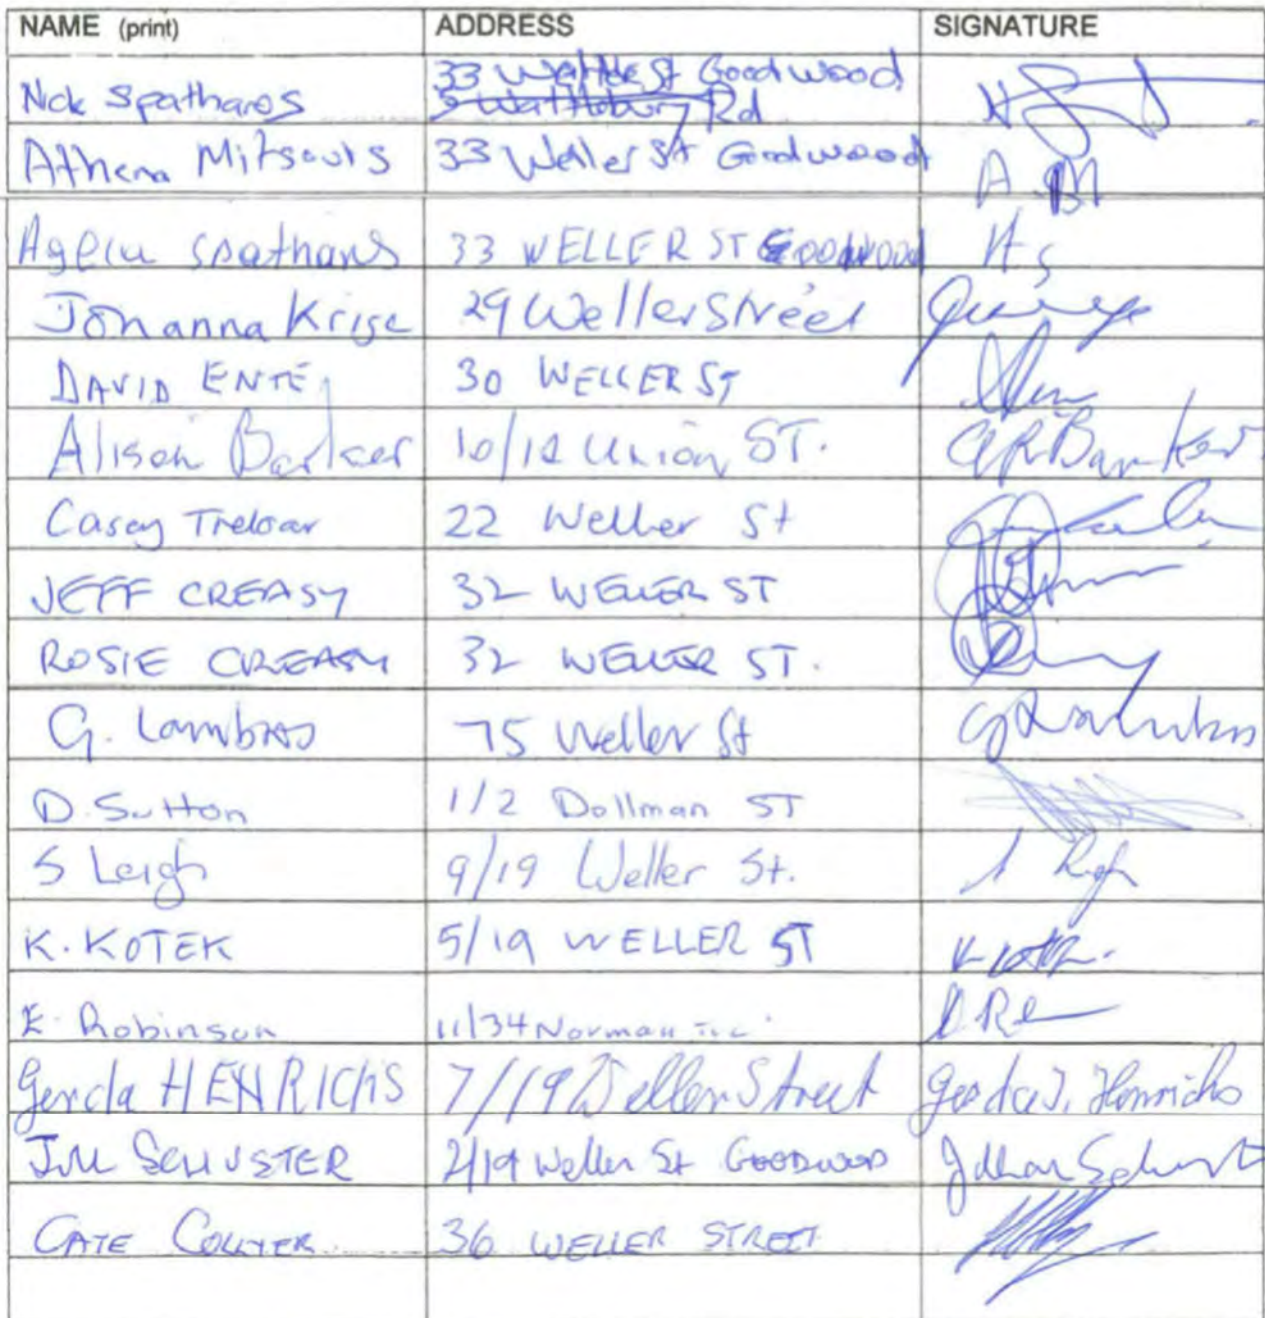 NAME (print) ADDRESS SIGNATURE
Nick Spatharos 33 Goodwood
Rd
Athena Mitsoulis 33 Weller St Goodwood A.M
Spatharos 33 WELLER ST GOODWOOD A S
Johanna Krige 29 Weller Street
DAVID ENTE 30 WELLER ST
Alison Barker 10/12 Union ST. A R Barker
Casey Treloar 22 Weller St
JEFF CREASY 32 WELLER ST
ROSIE CREASY 32 WELLER ST.
G. Lambros 75 Weller St G Lambros
D. Sutton 1/2 Dollman ST
S Leigh 9/19 Weller St.
K. KOTEK 5/19 WELLER ST
E. Robinson 11/34 Norman Tce
Gerda HENRICHS 7/19 Weller Street Gerda J. Henrichs
Jill SCHUSTER 2/19 Weller St GOODWOOD Jillian Schuster
CATE COLLYER 36 WELLER STREET